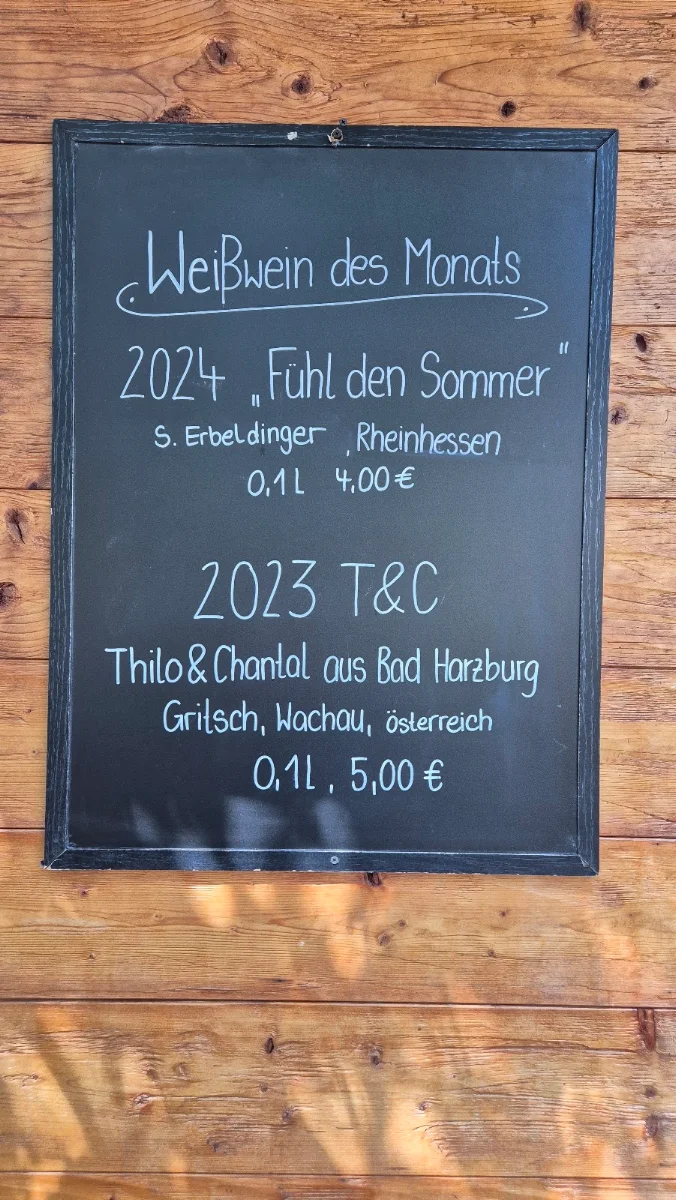 Weißwein des Monats
2024 „Fühl den Sommer"
S. Erbeldinger , Rheinhessen
0,1L 4,00 €
2023 T&C
Thilo & Chantal aus Bad Harzburg
Gritsch, Wachau, Österreich
0,1L , 5,00 €